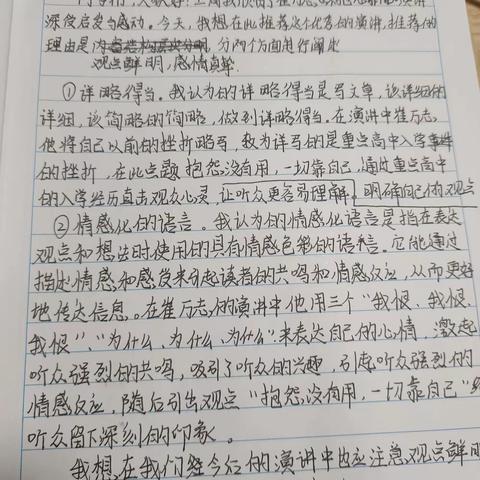 同学们，大家好！上周我欣赏了崔万志
深受启发与感动。今天，我想在此推荐这个优秀的演讲，推荐的
理由是 分两个方面进行阐述
观点鲜明，感情真挚
①详略得当。我认为的详略得当是写文章，该详细的
详细，该简略的简略，做到详略得当。在演讲中崔万志，
他将自己以前的挫折略写，较为详写的是重点高中入学
的挫折，在此点题抱怨没有用，一切靠自己，通过重点高中
的入学经历直击观众心灵，让听众更容易理解，明确自己的观点
②情感化的语言。我认为的情感化语言是指在表达
观点和想法时使用的具有情感色彩的语言。它能通过
描述情感和感受来引起读者的共鸣和情感反应，从而更好
地传达信息。在崔万志的演讲中他用三个"我恨、我恨、
我恨"、"为什么、为什么、为什么"来表达自己的心情，激起
听众强烈的共鸣，吸引了听众的兴趣，引起听众强烈的
情感反应，随后引出观点"抱怨没有用，一切靠自己"给
听众留下深刻的印象。
我想，在我们经今后的演讲中也应注意，观点鲜明